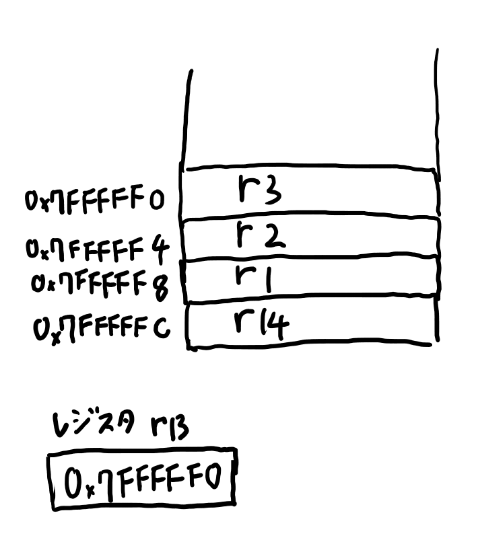 0x7FFFFF0 r3
0x7FFFFF4 r2
0x7FFFFF8 r1
0x7FFFFFC r14
レジスタ r13
0x7FFFFF0